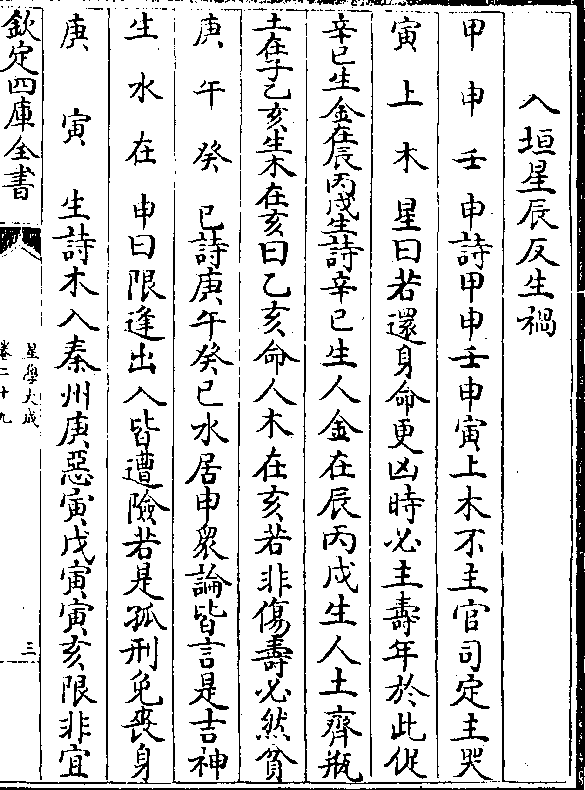 入垣星辰反生禍
甲申壬申詩甲申壬申寅上木不主官司定主哭
寅上木星曰若還身命更凶時必主壽年於此促
辛巳生金在辰丙戌生詩辛巳生人金在辰丙戌生人土齊瓶
土在子乙亥生木在亥曰乙亥命人木在亥若非傷壽必然貧
庚午癸巳詩庚午癸巳水居申衆論皆言是吉神
生水在申曰限逢出入皆遭險若是孤刑免喪身
庚寅生詩木入秦州庚惡寅戊寅寅亥限非宜
欽定四庫全書
星學大成
卷二十九
三